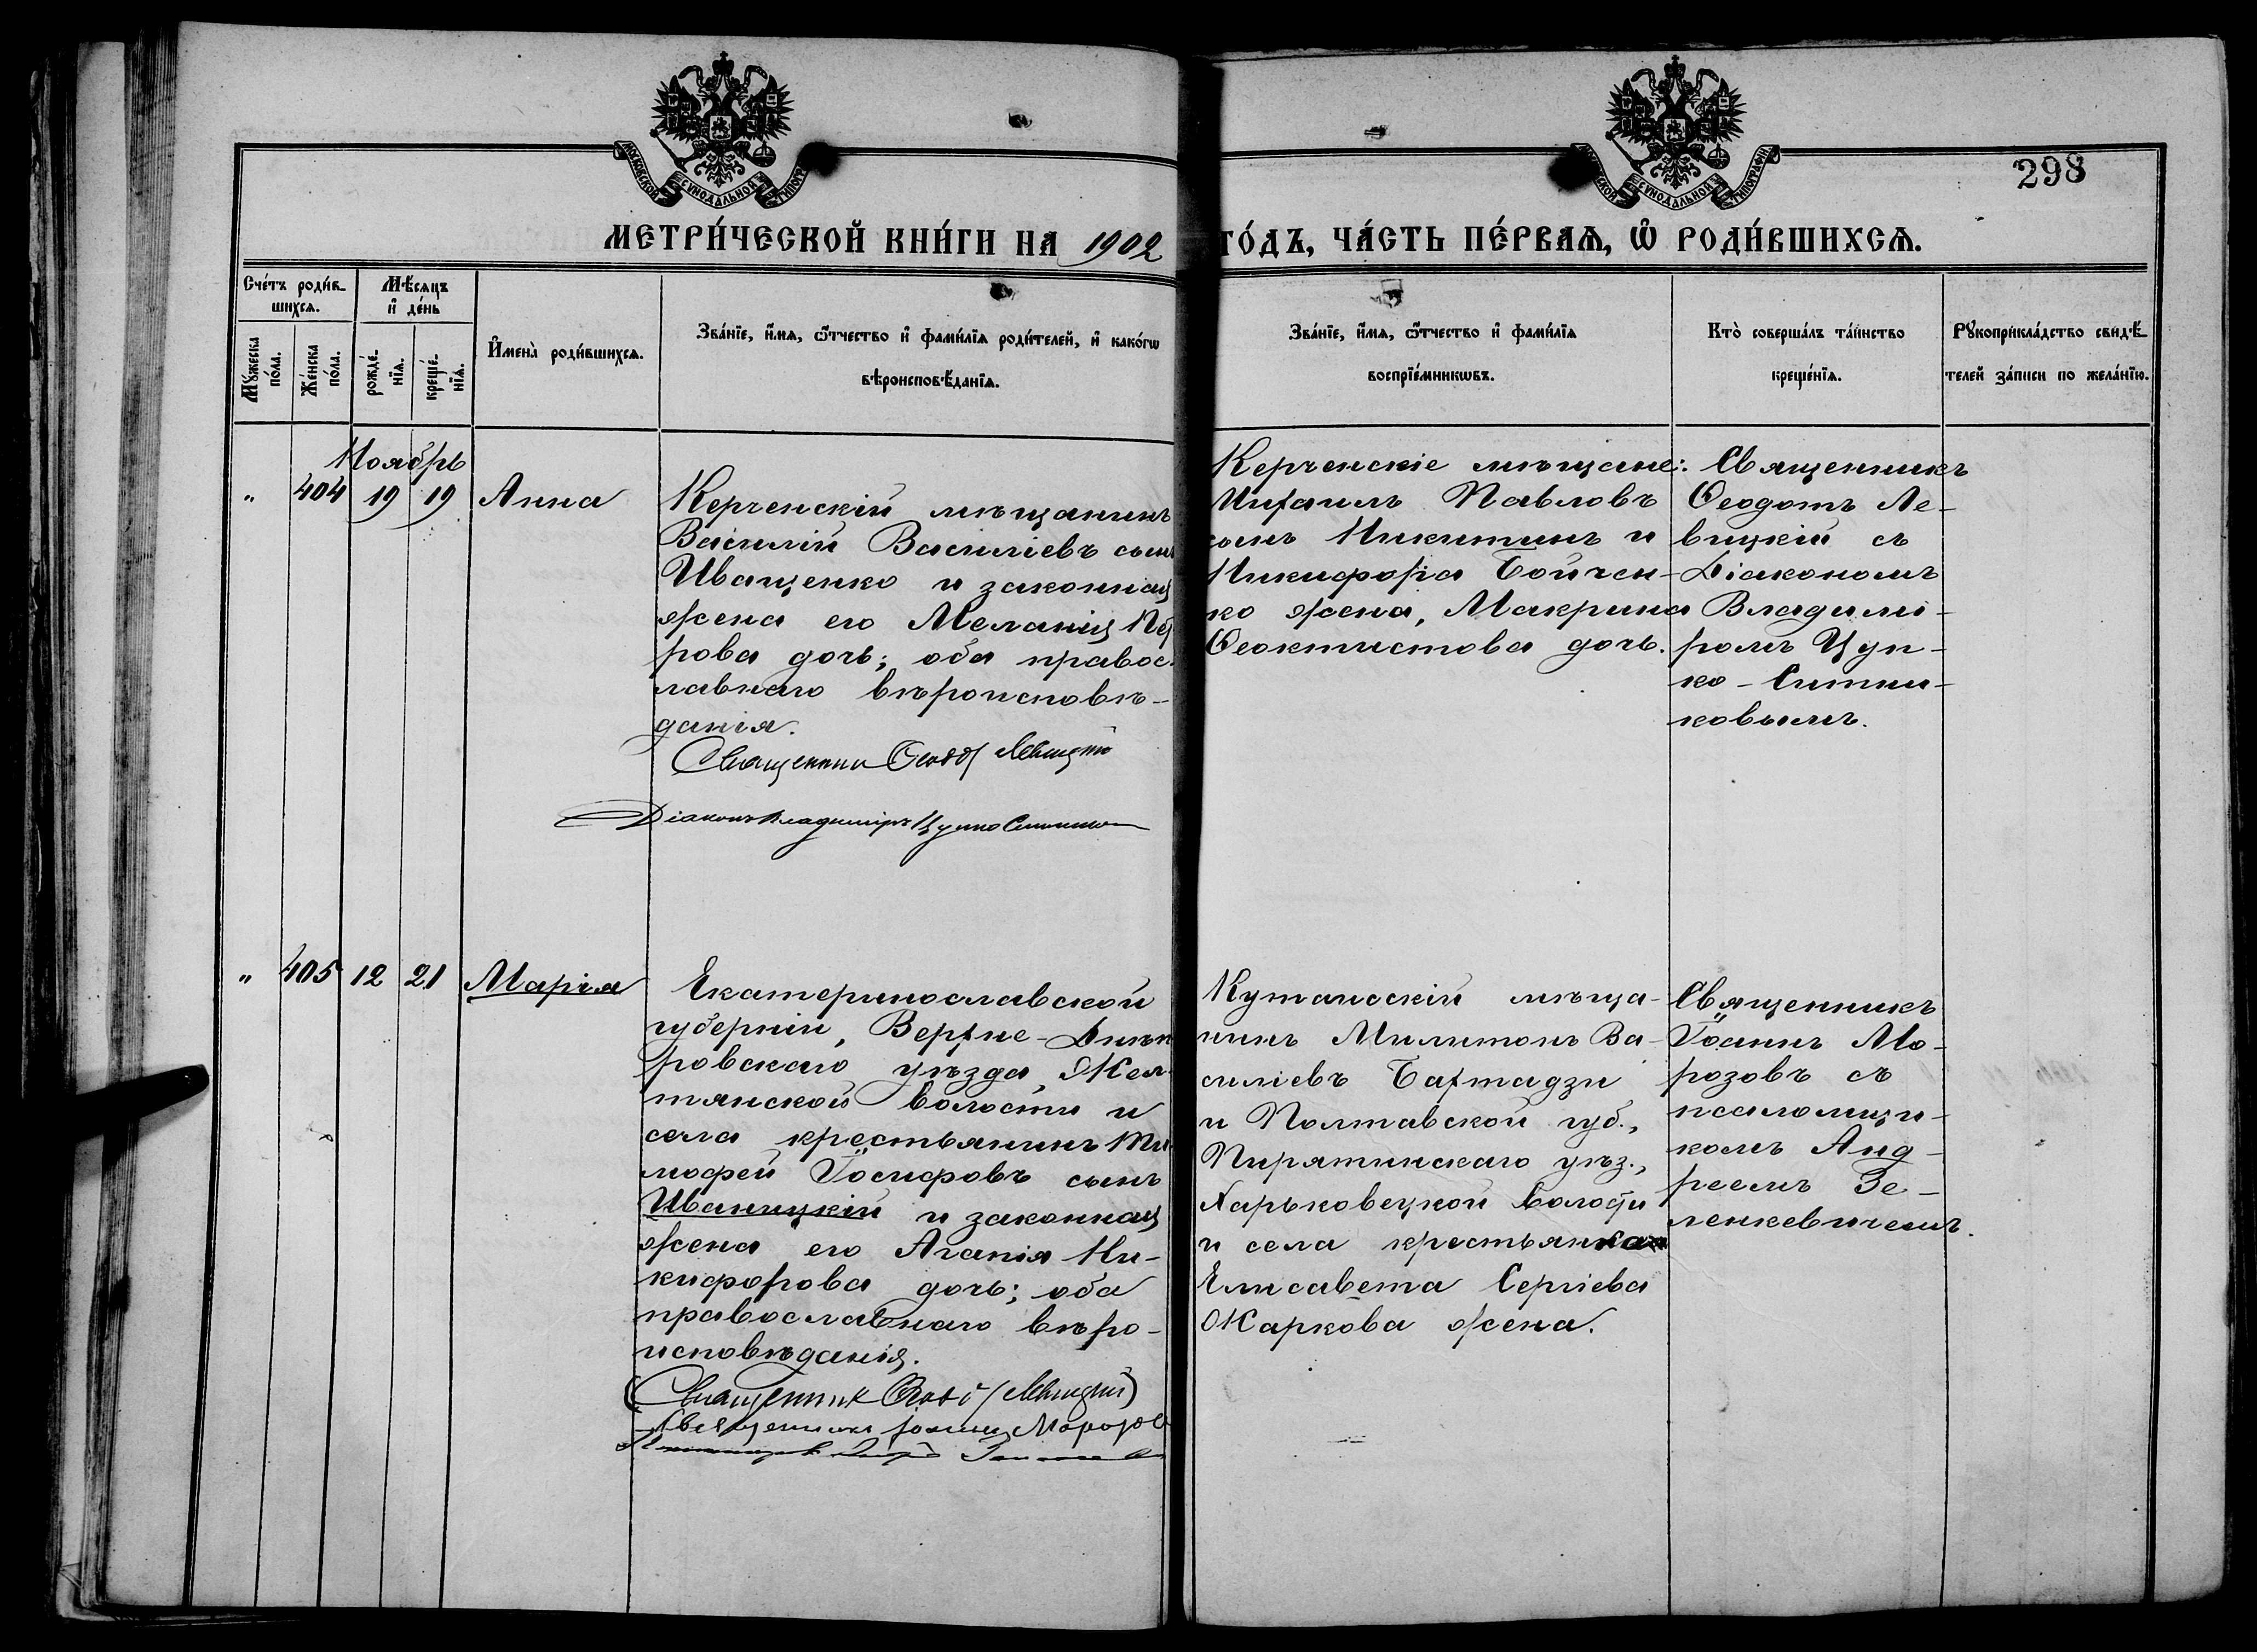 МОСКОВСКОЙ СѴНОДАЛЬНОЙ ТИПОГР
СКОЙ СѴНОДАЛЬНОЙ ТИПОГРАФІИ
298
МЕТРИ́ЧЕСКОЙ КНИ́ГИ НА 1902
ГО́ДЪ, ЧА́СТЬ ПЕ́РВАѦ, Ѽ РОДИ́ВШИХСѦ.
Сче́тъ роди́в-
шихсѧ.
Мꙋ́жеска
по́ла.
Же́нска
по́ла.
Мѣ́сѧцъ
и҆ де́нь
рожде́-
нїѧ.
креще́-
нїѧ.
И҆мена̀ роди́вшихсѧ.
Зва́нїе, и҆́мѧ, ѻ҆́тчество и҆ фами́лїѧ роди́телей, и҆ како́гѡ
вѣроисповѣ́данїѧ.
Зва́нїе, и҆́мѧ, ѻ҆́тчество и҆ фами́лїѧ
воспрїе́мникѡвъ.
Кто̀ соверша́лъ та́инство
креще́нїѧ.
Рꙋкоприкла́дство свидѣ́-
телей за́писи по жела́нїю.
Ноябрь
" 404 19 19 Анна
Керченскій мѣщанинъ
Василій Василіевъ сынъ
Иващенко и законная
жена его Меланія Пет
рова дочь; оба правос-
лавнаго вѣроисповѣ-
данія.
Священникъ Ѳеодотъ Левицкій
Діаконъ Владиміръ Цупко Ситников
Керченскіе мѣщане:
Михаилъ Павловъ
сынъ Никитинъ и
Никифора Бойчен-
ко жена, Макрина
Ѳеоктистова дочь.
Священникъ
Ѳеодотъ Ле-
вицкій съ
Діакономъ
Владимі-
ромъ Цуп-
ко-Ситни-
ковымъ.
" 405 12 21 Марія
Екатеринославской
губерніи, Верхне-Днѣп
ровскаго уѣзда, Жел-
тянской волости и
села крестьянинъ Ти
мофей Іосифовъ сынъ
Иваницкій и законная
жена его Агапія Ни-
кифорова дочь; оба
православнаго вѣро-
исповѣданія.
Священник Ѳеодот Левицкій
Священникъ Іоаннъ Морозов
Кутаисскій мѣща-
нинъ Милитонъ Ва-
силіевъ Бахтадзи
и Полтавской губ.,
Пирятинскаго уѣз.,
Харьковецкой волости
и села крестьянка
Елисавета Сергіева
Жаркова жена.
Священникъ
Іоаннъ Мо-
розовъ съ
псаломщи-
комъ Анд-
реемъ Зе-
ленкевичемъ.